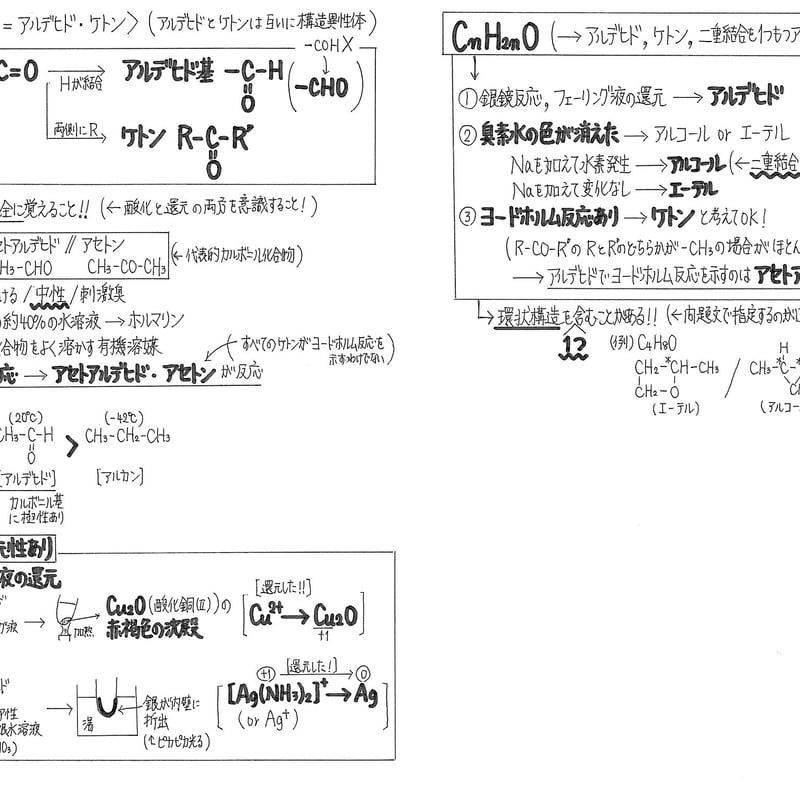 = アルデヒド・ケトン〉(アルデヒドとケトンは互いに構造異性体)
C=O
Hが結合
アルデヒド基 -C-H
O
-COH X
(-CHO)
両側にR
ケトン R-C-R'
O
全に覚えること!! (←酸化と還元の両方を意識すること!)
セトアルデヒド // アセトン
CH3-CHO CH3-CO-CH3
(←代表的カルボニル化合物)
ける/中性/刺激臭
の約40%の水溶液→ホルマリン
合物をよく溶かす有機溶媒
すべてのケトンがヨードホルム反応を
示すわけでない
応→アセトアルデヒド・アセトンが反応
(20℃) (-42℃)
CH3-C-H > CH3-CH2-CH3
O
[アルデヒド] [アルカン]
カルボニル基
に極性あり
元性あり
夜の還元
ド
グ液
加熱
Cu2O(酸化銅(Ⅱ))の
赤褐色の沈殿
[還元した!!]
Cu2+→Cu2O
+1
ド
ア性
銀水溶液
O3)
湯
銀が内壁に
析出
(↑ピカピカ光る)
+1 [還元した!] 0
[Ag(NH3)2]+→Ag
(or Ag+)
CnH2nO (→アルデヒド,ケトン,二重結合を1つもつア
①銀鏡反応,フェーリング液の還元→アルデヒド
②臭素水の色が消えた→アルコール or エーテル
Naを加えて水素発生→アルコール(←二重結合
Naを加えて変化なし→エーテル
③ヨードホルム反応あり→ケトンと考えてOK!
(R-CO-R'のRとR'のどちらかが-CH3の場合がほとん
→アルデヒドでヨードホルム反応を示すのはアセトア
→環状構造を含むことがある!! (←問題文で指定するのが
1つ
(例) C4H8O
CH2-*CH-CH3
CH2-O
(エーテル)
/
H
CH3-C*-*
(アルコー